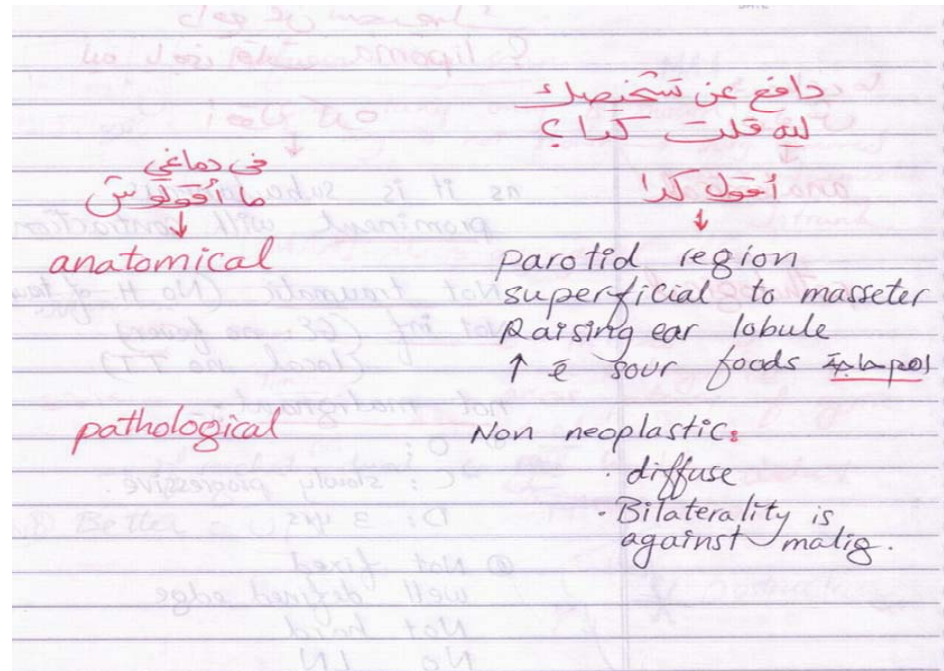 دافع عن تشخيصك
ليه قلت كدا؟
أقول كدا
فى دماغي
ما أقولوش
↓
↓
anatomical
parotid region
superficial to masseter
Raising ear lobule
↑ ē sour foods أهم حاجة
pathological
Non neoplastic:
· diffuse
· Bilaterality is
against malig.